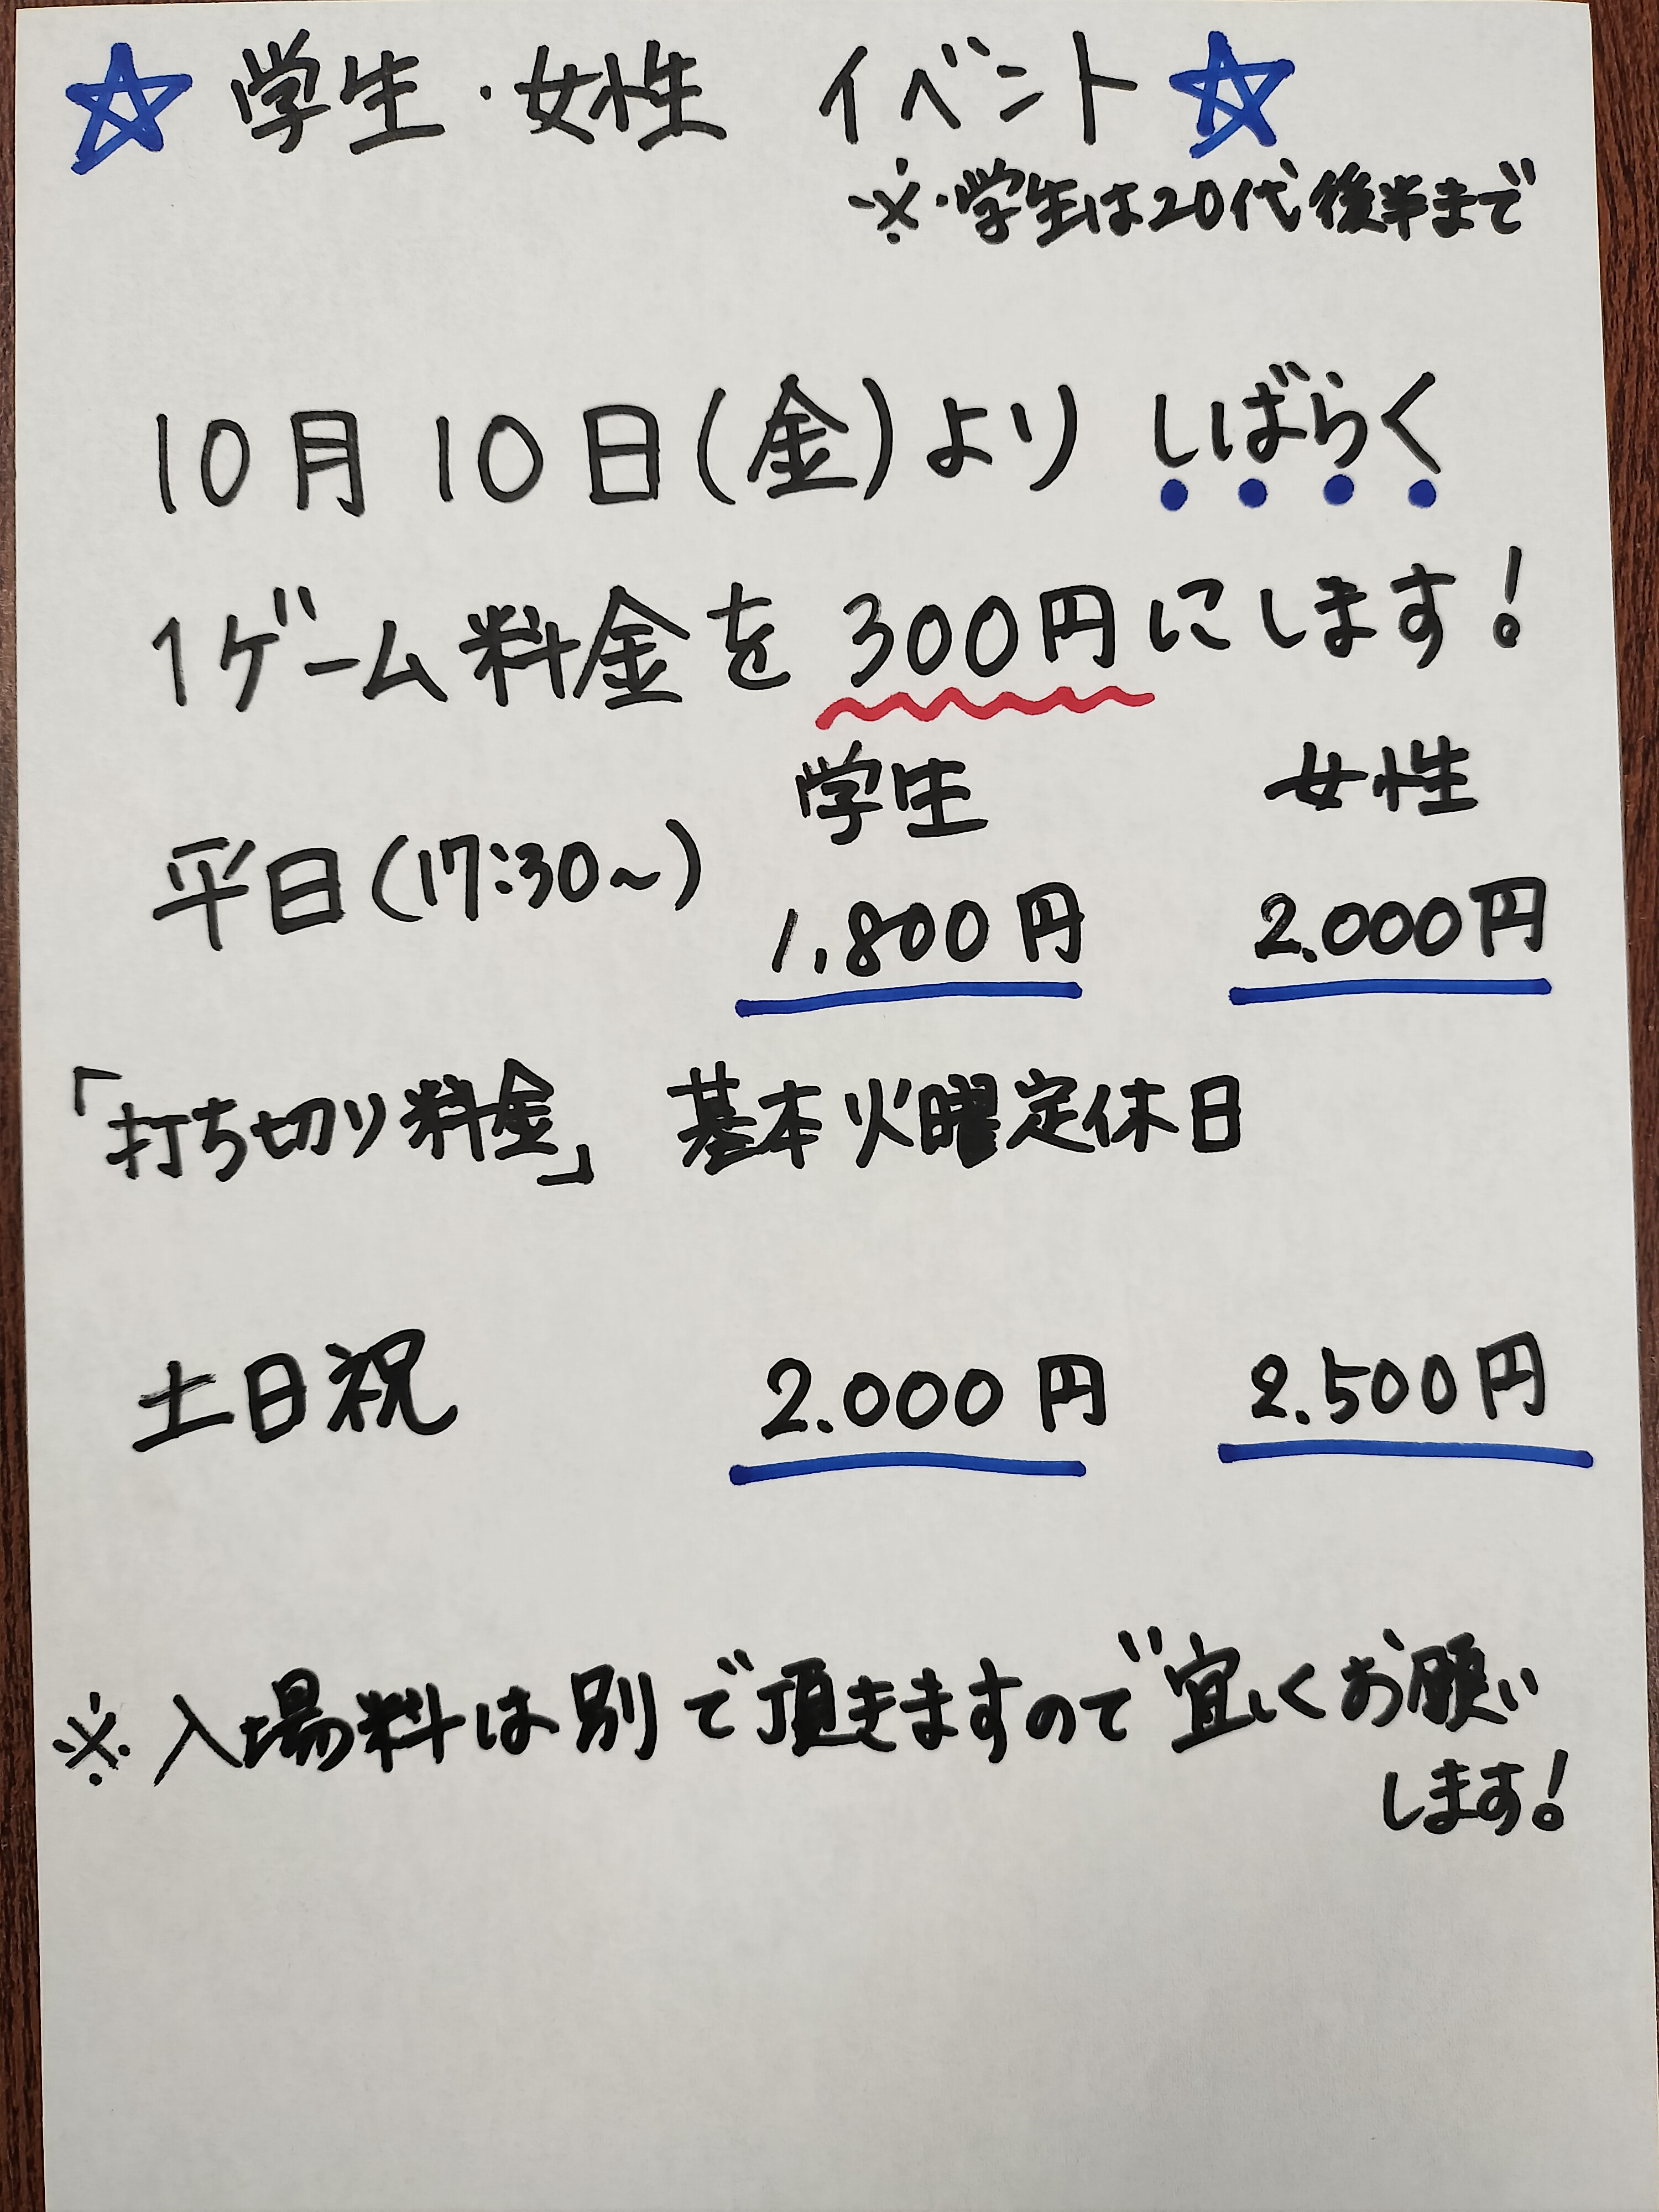 ☆ 学生・女性 イベント ☆
※・学生は20代後半まで
10月10日(金)より しばらく
1ゲーム料金を300円にします!
学生 女性
平日(17:30~) 1,800円 2.000円
「打ち切り料金」 基本火曜定休日
土日祝 2.000円 2.500円
※入場料は別で頂きますので宜しくお願い
します!